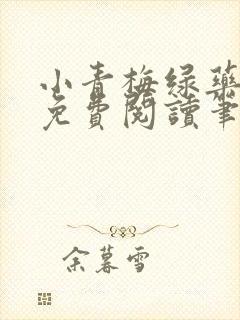 小青梅绿药
免費閱讀筆
余暮雪